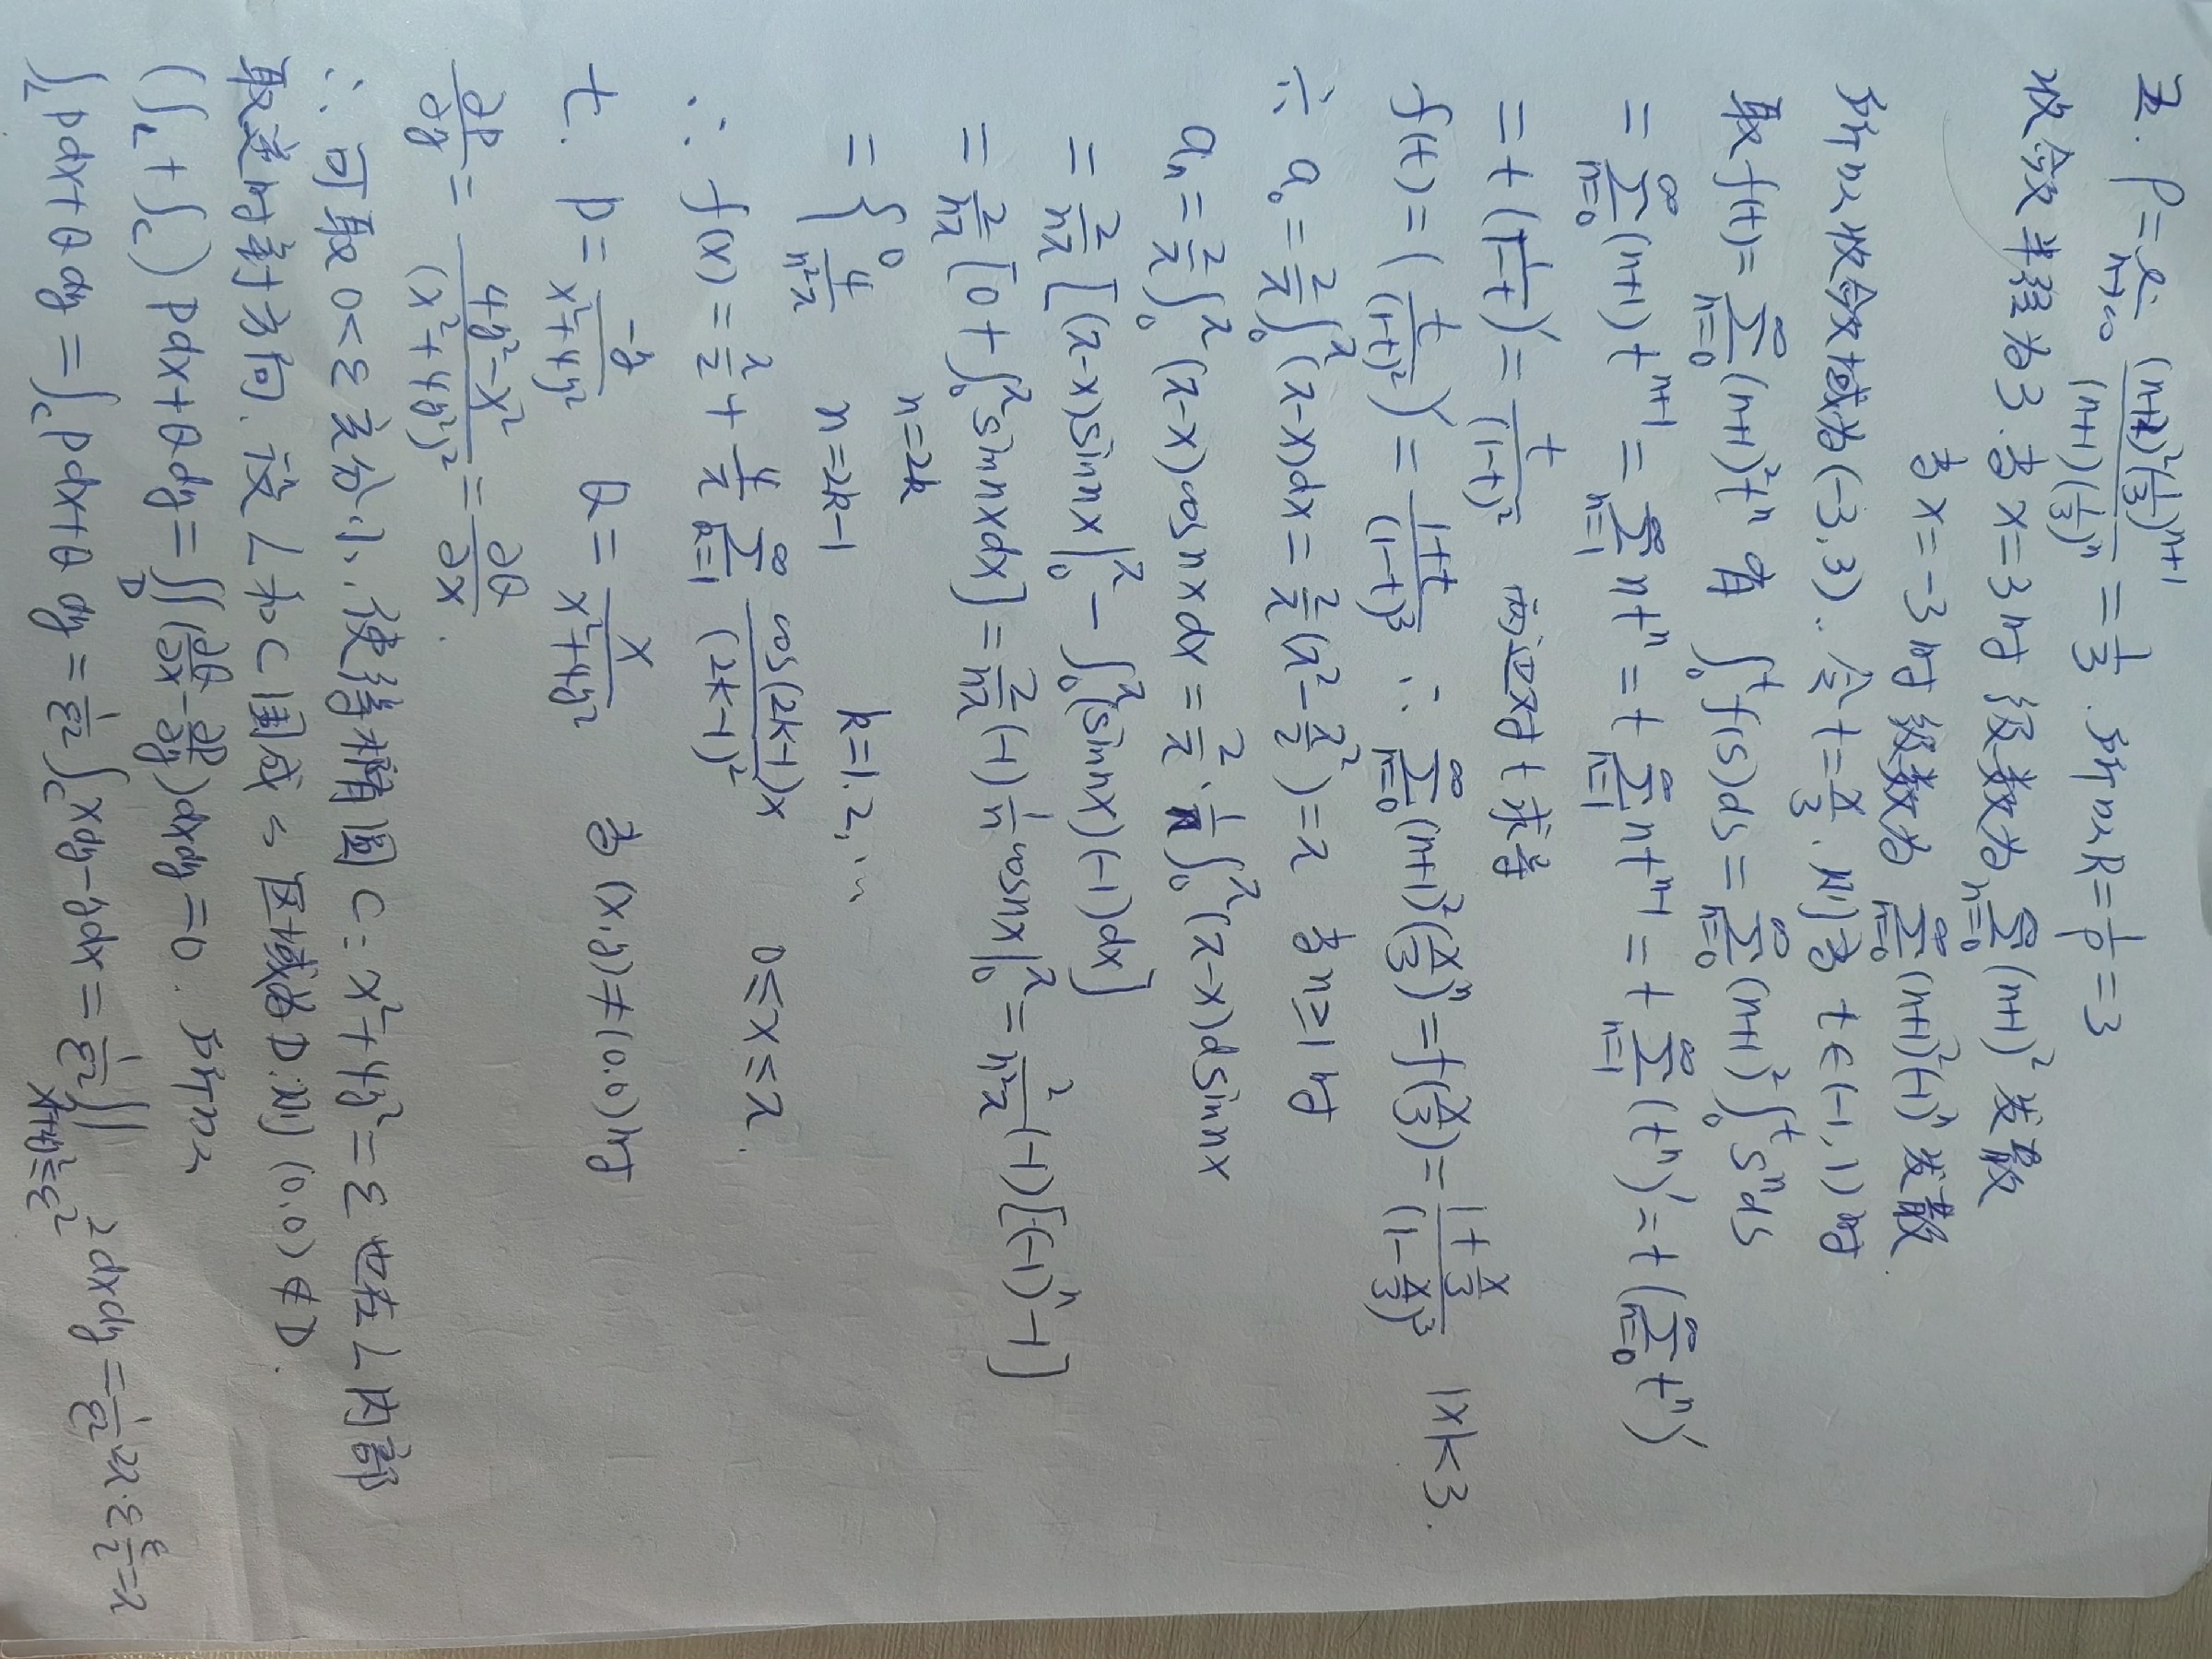 五. ρ = lim_{n→∞} \frac{(n+2)^2(\frac{1}{3})^{n+1}}{(n+1)(\frac{1}{3})^n} = \frac{1}{3}. 所以R = \frac{1}{ρ} = 3
收敛半径为3. 当x=3时 级数为 \sum_{n=0}^{∞}(n+1)^2 发散
当x=-3时 级数为 \sum_{n=0}^{∞}(n+1)^2(-1)^n 发散.
所以收敛域为(-3,3). 令t=\frac{x}{3}. 则当t∈(-1,1)时
取f(t)=\sum_{n=0}^{∞}(n+1)^2t^n 有 \int_0^t f(s)ds = \sum_{n=0}^{∞}(n+1)^2\int_0^t s^n ds
= \sum_{n=0}^{∞}(n+1)t^{n+1} = \sum_{n=1}^{∞}nt^n = t\sum_{n=1}^{∞}nt^{n-1} = t\sum_{n=1}^{∞}(t^n)' = t(\sum_{n=0}^{∞}t^n)'
= t(\frac{1}{1-t})' = \frac{t}{(1-t)^2} 两边对t求导
f(t) = (\frac{t}{(1-t)^2})' = \frac{1+t}{(1-t)^3} ∴ \sum_{n=0}^{∞}(n+1)^2(\frac{x}{3})^n = f(\frac{x}{3}) = \frac{1+\frac{x}{3}}{(1-\frac{x}{3})^3} |x|<3.
六. a_0 = \frac{2}{π}\int_0^π(π-x)dx = \frac{2}{π}(π^2-\frac{π^2}{2}) = π 当n≥1时
a_n = \frac{2}{π}\int_0^π(π-x)cosnxdx = \frac{2}{π}·\frac{1}{n}\int_0^π(π-x)dsinnx
= \frac{2}{nπ}[(π-x)sinnx|_0^π - \int_0^π(sinnx)(-1)dx]
= \frac{2}{nπ}[0+\int_0^πsinnxdx] = \frac{2}{nπ}(-1)\frac{1}{n}cosnx|_0^π = \frac{2}{n^2π}(-1)[(-1)^n-1]
= { 0 n=2k
\frac{4}{n^2π} n=2k-1 k=1,2,…
∴ f(x) = \frac{π}{2}+\frac{4}{π}\sum_{k=1}^{∞}\frac{cos(2k-1)x}{(2k-1)^2} 0≤x≤π.
七. P=\frac{-y}{x^2+4y^2} Q=\frac{x}{x^2+4y^2} 当(x,y)≠(0,0)时
\frac{∂P}{∂y} = \frac{4y^2-x^2}{(x^2+4y^2)^2} = \frac{∂Q}{∂x}.
∴ 可取0<ε充分小, 使得椭圆C: x^2+4y^2=ε 也在L内部
取逆时针方向. 设L和C围成的区域为D. 则(0,0)∉D.
(\int_L+\int_C)Pdx+Qdy = \iint_D(\frac{∂Q}{∂x}-\frac{∂P}{∂y})dxdy=0. 所以
\int_L Pdx+Qdy = \int_C Pdx+Qdy = \frac{1}{ε^2}\int_C xdy-ydx = \frac{1}{ε^2}\iint_{x^2+4y^2≤ε^2}2dxdy = \frac{1}{ε^2}2π·ε·\frac{ε}{2}=π